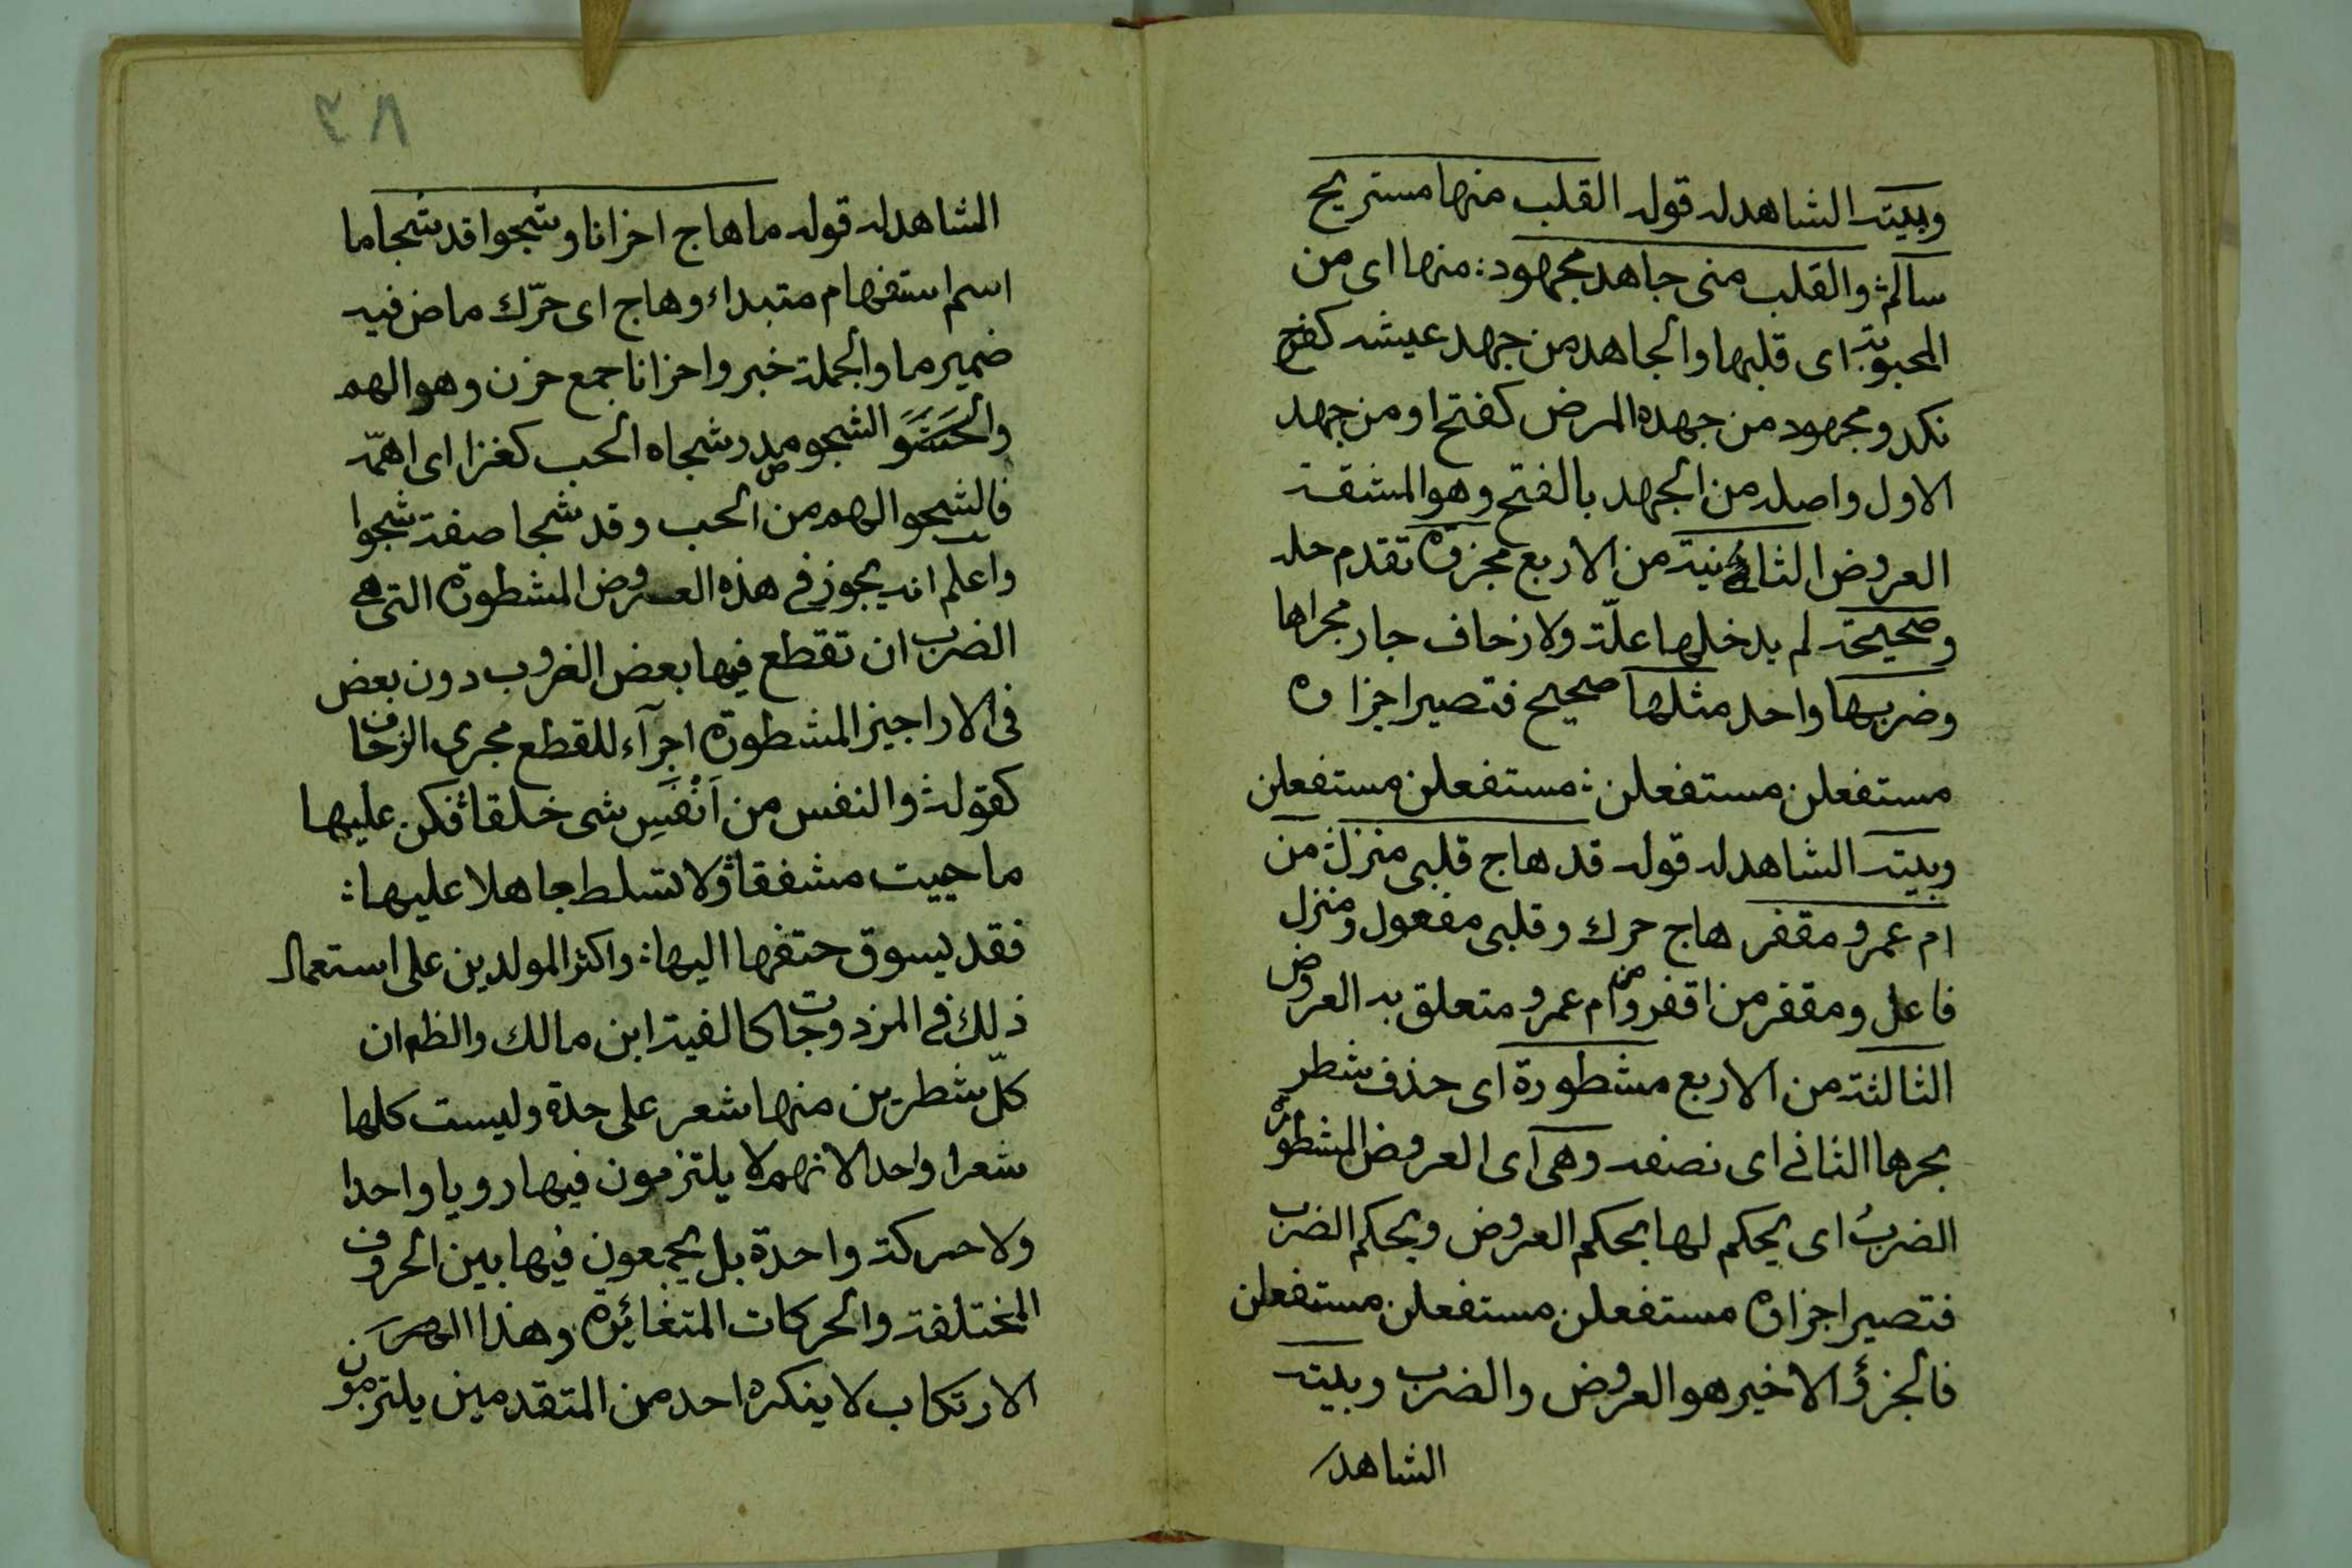 وبيته الشاهد له قوله القلب منها مستريح
سالم والقلب منى جاهد مجهود: منها اى من
المحبوبة اى قلبها والجاهد من جهد عيشه كفرح
نكد ومجهود من جهده المرض كفتح او من جهد
الاول واصله من الجهد بالفتح وهو المشقة
العروض الثانية من الاربع مجزوة تقدم حله
وصحيحة لم يدخلها علّة ولا زحاف جار مجراها
وضربها واحد مثلها صحيح فتصير اجزاوه
مستفعلن مستفعلن: مستفعلن مستفعلن
وبيته الشاهد له قوله قد هاج قلبى منزل: من
ام عمرو مقفر هاج حرك وقلبى مفعول ومنزل
فاعل ومقفر من اقفر ومن ام عمرو متعلق به العروض
الثالثة من الاربع مشطورة اى حذف شطر
بحرها الثانى اى نصفه وهى اى العروض المشطورة
الضرب اى يحكم لها بحكم العروض وبحكم الضرب
فتصير اجزاوه مستفعلن مستفعلن مستفعلن
فالجزؤ الاخير هو العروض والضرب وبيته
الشاهد
٣٨
الشاهد له قوله ما هاج احزانا وشجوا قد شجا ما
اسم استفهام متبداء وهاج اى حرّك ماض فيه
ضمير ما والجملة خبر واحزانا جمع حزن وهو الهم
الشجو مصدر شجاه الحب كغزا اى اهمّه
فالشجو الهم من الحب وقد شجا صفة شجوا
واعلم انه يجوز فى هذه العروض المشطورة التى هى
الضرب ان تقطع فيها بعض الضروب دون بعض
فى الاراجيز المشطورة اجرآء للقطع مجرى الزحاف
كقوله: والنفس من اَنْفَسِ شى خلقا: فكن عليها
ما حييت مشفقا: ولا تسلط جاهلا عليها:
فقد يسوق حتفها اليها: واكثر المولدين على استعمال
ذلك فى المزدوجات كالفية ابن مالك والظ ان
كلّ شطرين منها شعر على حدة وليست كلها
شعرا واحدا لانهم لا يلتزمون فيها رويا واحدا
ولا حركة واحدة بل يجمعون فيها بين الحروف
المختلفة والحركات المتغائرة وهذا
الارتكاب لا ينكره احد من المتقدمين يلتزمون